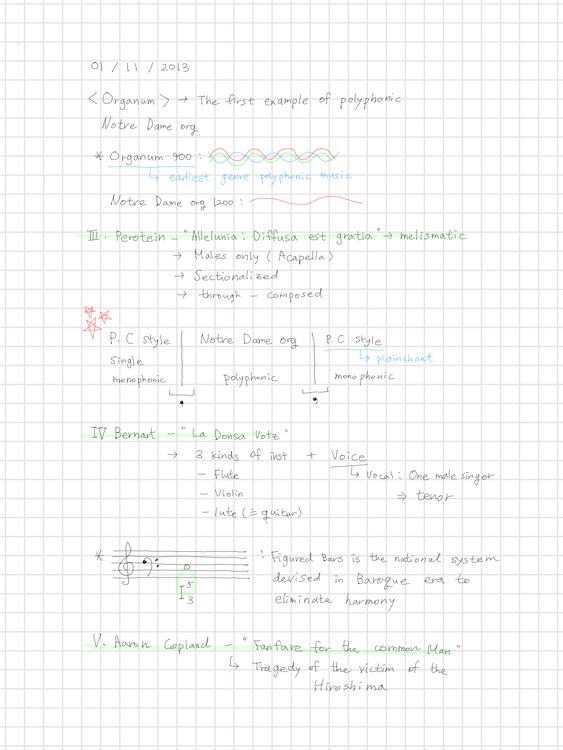 01 / 11 / 2013
<Organum> → The first example of polyphonic
Notre Dame org
* Organum 900 :
↳ earliest genre polyphonic music
Notre Dame org 1200 :
III. Perotein - "Allelunia: Diffusa est gratia" → melismatic
→ Males only (Acapella)
→ Sectionalized
→ through - composed
P. C style Notre Dame org P. C style
↳ plainchant
single
monophonic polyphonic monophonic
IV Bernart - "La Donsa Votz"
→ 3 kinds of inst + Voice
- Flute ↳ Vocal : One male singer
- Violin ⇒ tenor
- lute (≒ guitar)
* : Figured Bars is the national system
devised in Baroque era to
eliminate harmony
I 5 3
V. Aaron Copland - "Fanfare for the common Man"
↳ Tragedy of the victim of the
Hiroshima